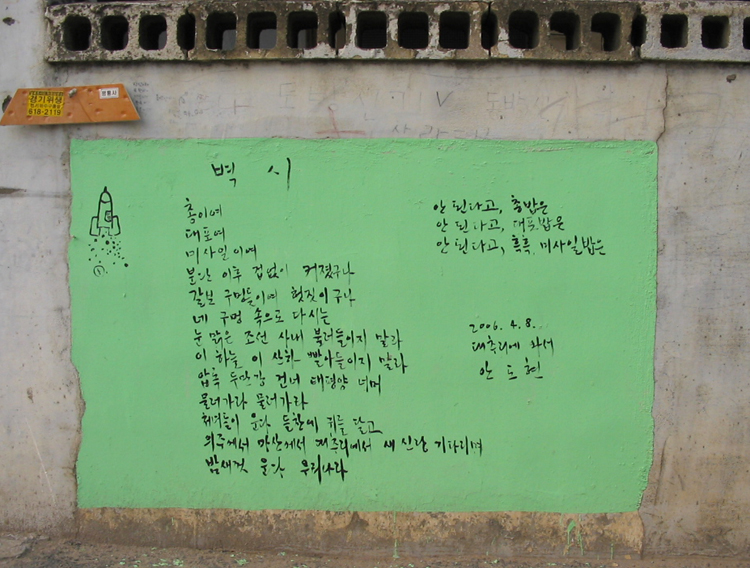 경기위생
618-2119
벽 시
총이여
대포여
미사일이여
분단 이후 겁없이 커졌구나
갈보 구멍들이여 헛짓이구나
네 구멍 속으로 다시는
눈 맑은 조선 사내 불러들이지 말라
이 하늘 이 산하 빨아들이지 말라
압록 두만강 건너 태평양 너머
물러가라 물러가라
처녀들이 운다 들판에 귀를 닫고
의주에서 마산에서 대추리에서 새 신랑 기다리며
밤새껏 운다 우리나라
안 된다고, 총밥은
안 된다고, 대포밥은
안 된다고, 흑흑, 미사일밥은
2006. 4. 8.
대추리에 와서
안도현